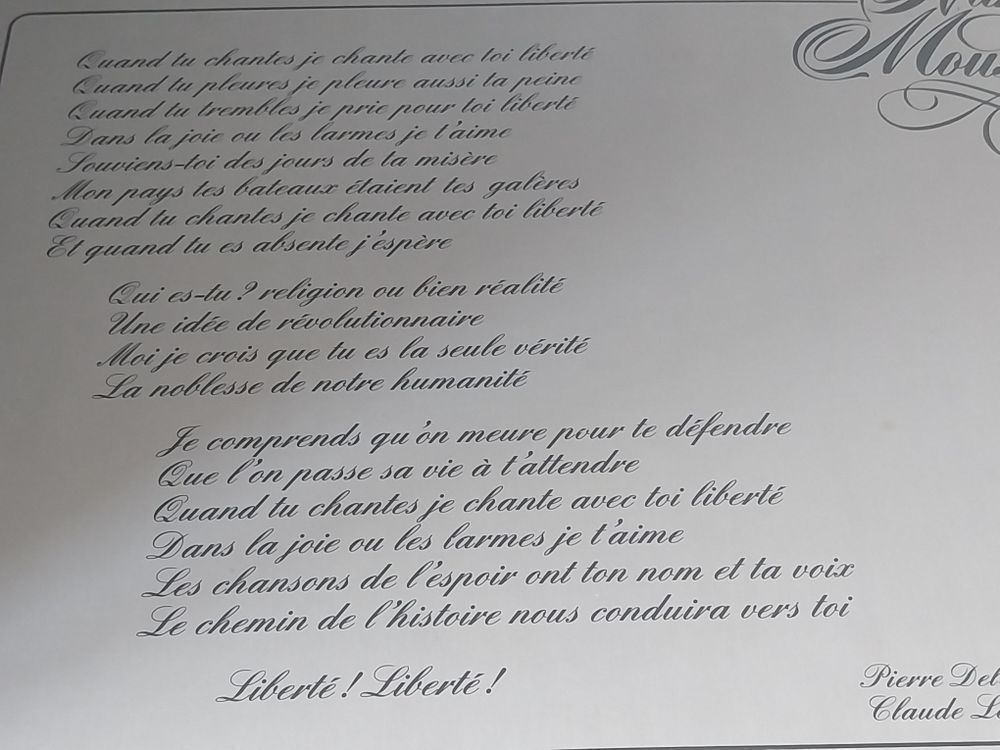 Mous
Quand tu chantes je chante avec toi liberté
Quand tu pleures je pleure aussi ta peine
Quand tu trembles je prie pour toi liberté
Dans la joie ou les larmes je t'aime
Souviens-toi des jours de ta misère
Mon pays tes bateaux étaient tes galères
Quand tu chantes je chante avec toi liberté
Et quand tu es absente j'espère
Qui es-tu ? religion ou bien réalité
Une idée de révolutionnaire
Moi je crois que tu es la seule vérité
La noblesse de notre humanité
Je comprends qu'on meure pour te défendre
Que l'on passe sa vie à t'attendre
Quand tu chantes je chante avec toi liberté
Dans la joie ou les larmes je t'aime
Les chansons de l'espoir ont ton nom et ta voix
Le chemin de l'histoire nous conduira vers toi
Liberté ! Liberté !
Pierre Del
Claude Le